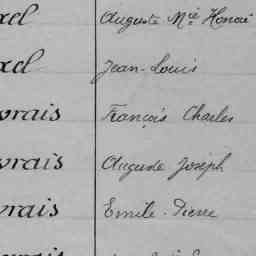 xel Auguste Mie Honoré
xel Jean-Louis
vrais François Charles
vrais Auguste Joseph
vrais Emile-Pierre